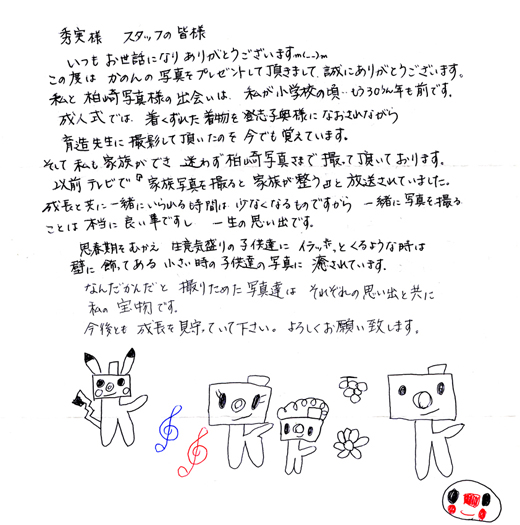 秀実様 スタッフの皆様
いつもお世話になりありがとうございますm(__)m
この度は かのんの写真をプレゼントして頂きまして、誠にありがとうございます。
私と柏崎写真様の出会いは、私が小学校の頃…もう30うん年も前です。
成人式では、着くずれた着物を登志子奥様になおされながら
育造先生に撮影して頂いたのを今でも覚えています。
そして私も家族ができ 迷わず柏崎写真さまで撮って頂いております。
以前テレビで『家族写真を撮ると家族が整う』と放送されていました。
成長と共に一緒にいられる時間は少なくなるものですから 一緒に写真を撮る
ことは本当に良い事ですし 一生の思い出です。
思春期をむかえ 生意気盛りの子供達に イラッ、とくるような時は
壁に飾ってある小さい時の子供達の写真に癒されています。
なんだかんだと 撮りためた写真達は それぞれの思い出と共に
私の宝物です。
今後とも 成長を見守っていて下さい。よろしくお願い致します。